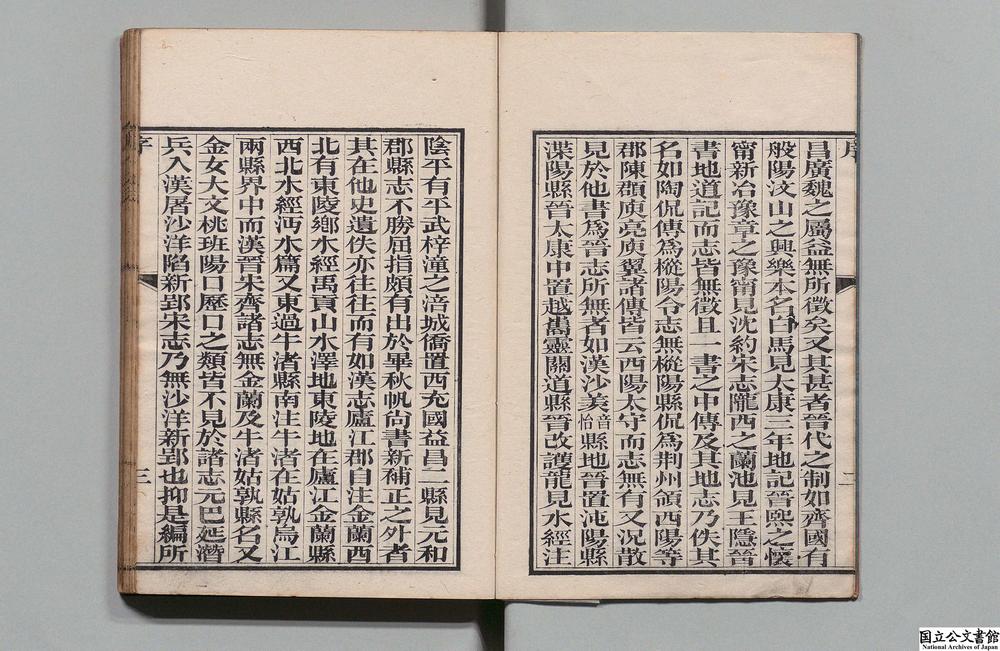 序 二
昌廣魏之屬益無所徵矣又其甚者晉代之制如齊國有
般陽汶山之興樂本名白馬見太康三年地記晉熙之懷
甯新冶豫章之豫甯見沈約宋志隴西之蘭池見王隱晉
書地道記而志皆無徵且一書之中傳及其地志乃佚其
名如陶侃傳爲樅陽令志無樅陽縣侃爲荆州領西陽等
郡陳頵庾亮庾翼諸傳皆云西陽太守而志無有又況散
見於他書爲晉志所無者如漢沙羨音怡縣地晉置沌陽縣
漅陽縣晉太康中置越嶲靈關道縣晉改護龍見水經注
陰平有平武梓潼之涪城僑置西充國益昌二縣見元和
郡縣志不勝屈指頗有出於畢秋帆尚書新補正之外者
其在他史遺佚亦往往而有如漢志廬江郡自注金蘭西
北有東陵鄉水經禹貢山水澤地東陵地在廬江金蘭縣
西北水經沔水篇又東過牛渚縣南注牛渚在姑孰烏江
兩縣界中而漢晉宋齊諸志無金蘭及牛渚姑孰縣名又
金女大文桃班陽口歷口之類皆不見於諸志元巴延濳
兵入漢屠沙洋陷新郢宋志乃無沙洋新郢也抑是編所
序 三
国立公文書館
National Archives of Japan